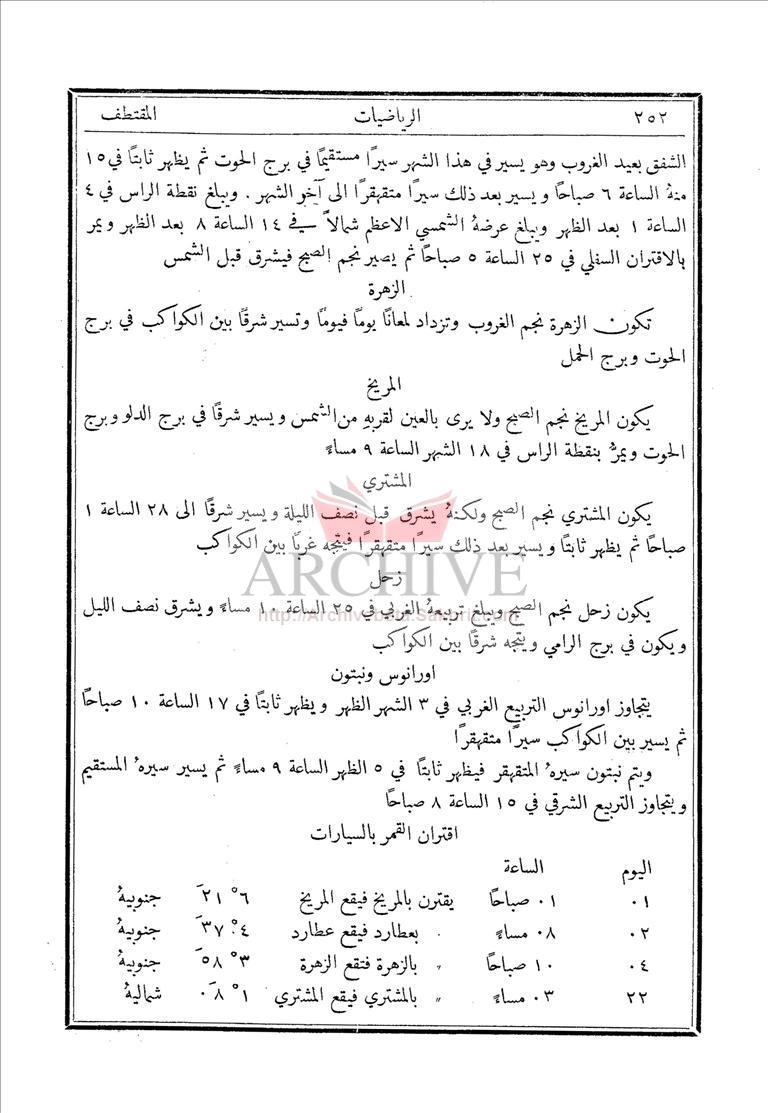 ٢٥٢ الرياضيات المقتطف
الشفق بعيد الغروب وهو يسير في هذا الشهر سيرًا مستقيمًا في برج الحوت ثم يظهر ثابتًا في ١٥
منهُ الساعة ٦ صباحًا ويسير بعد ذلك سيرًا متقهقرًا الى آخر الشهر . ويبلغ نقطة الراس في ٤
الساعة ١ بعد الظهر ويبلغ عرضهُ الشمسي الاعظم شمالاً في ١٤ الساعة ٨ بعد الظهر ويمر
بالاقتران السفلي في ٢٥ الساعة ٥ صباحًا ثم يصير نجم الصبح فيشرق قبل الشمس
الزهرة
تكون الزهرة نجم الغروب وتزداد لمعانًا يومًا فيومًا وتسير شرقًا بين الكواكب في برج
الحوت وبرج الحمل
المريخ
يكون المريخ نجم الصبح ولا يرى بالعين لقربهِ من الشمس ويسير شرقًا في برج الدلو وبرج
الحوت ويمرُّ بنقطة الراس في ١٨ الشهر الساعة ٩ مساءً
المشتري
يكون المشتري نجم الصبح ولكنهُ يشرق قبل نصف الليلة ويسير شرقًا الى ٢٨ الساعة ١
صباحًا ثم يظهر ثابتًا ويسير بعد ذلك سيرًا متقهقرًا فيتجه غربًا بين الكواكب
ARCHIVE
زحل
يكون زحل نجم الصبح ويبلغ تربيعهُ الغربي في ٢٥ الساعة ١٠ مساءً ويشرق نصف الليل
http://Archivebeta.Sakhrit.com
ويكون في برج الرامي ويتجه شرقًا بين الكواكب
اورانوس ونبتون
يتجاوز اورانوس التربيع الغربي في ٣ الشهر الظهر ويظهر ثابتًا في ١٧ الساعة ١٠ صباحًا
ثم يسير بين الكواكب سيرًا متقهقرًا
ويتم نبتون سيرهُ المتقهقر فيظهر ثابتًا في ٥ الظهر الساعة ٩ مساءً ثم يسير سيرهُ المستقيم
ويتجاوز التربيع الشرقي في ١٥ الساعة ٨ صباحًا
اقتران القمر بالسيارات
اليوم الساعة
٠١ ٠١ صباحًا يقترن بالمريخ فيقع المريخ ٦° ٢١َ جنوبيهُ
٠٢ ٠٨ مساءً ٠ بعطارد فيقع عطارد ٤° ٣٧َ جنوبيهُ
٠٤ ١٠ صباحًا ″ بالزهرة فتقع الزهرة ٣° ٥٨َ جنوبيهُ
٢٢ ٠٣ مساءً ″ بالمشتري فيقع المشتري ١° ٠٨َ شماليهُ